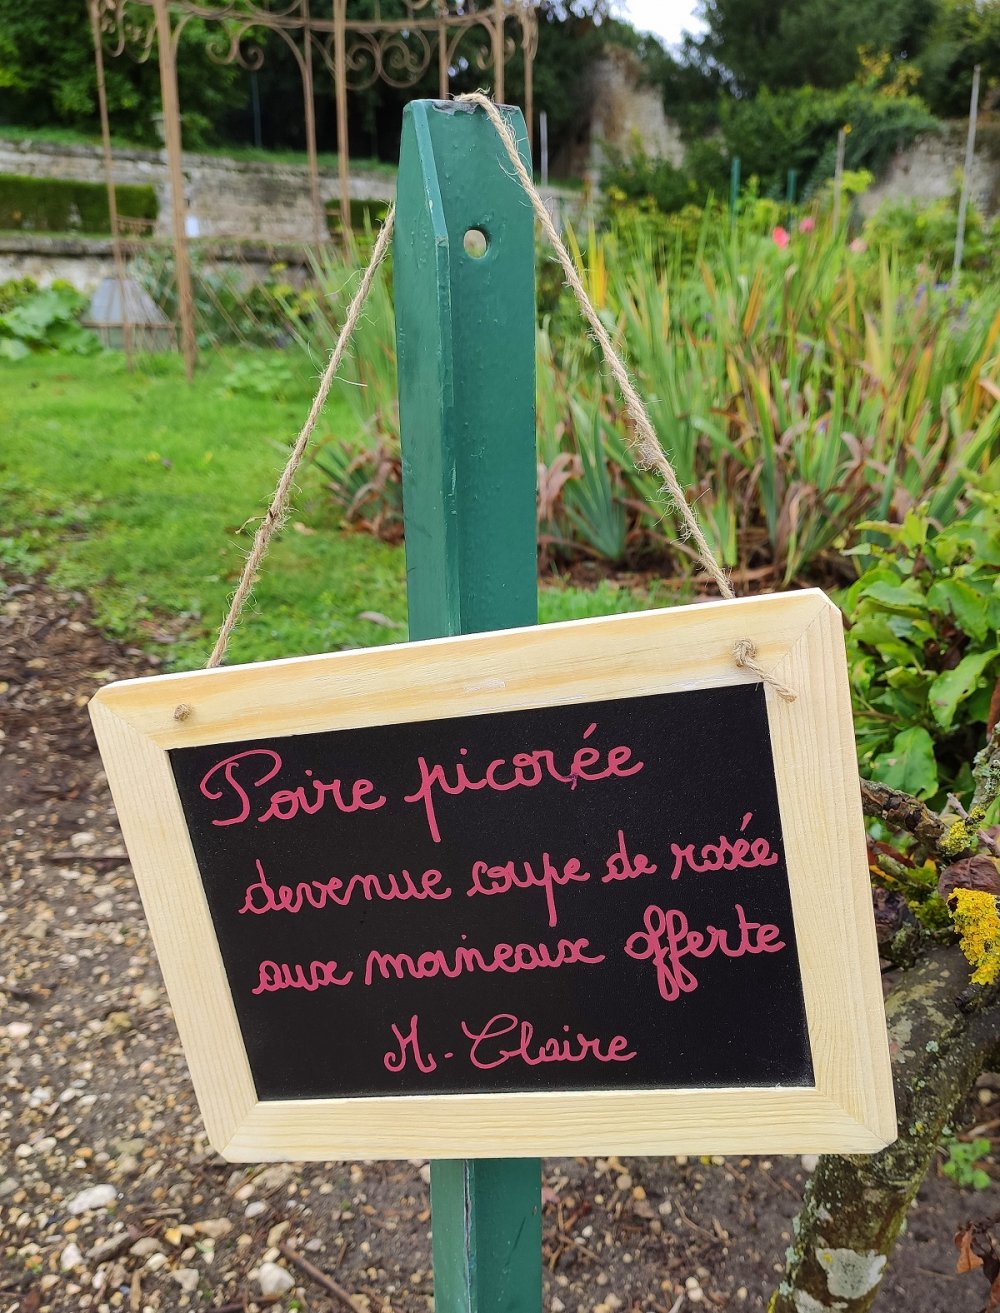 Poire picorée
devenue coupe de rosée
aux moineaux offerte
M. Claire